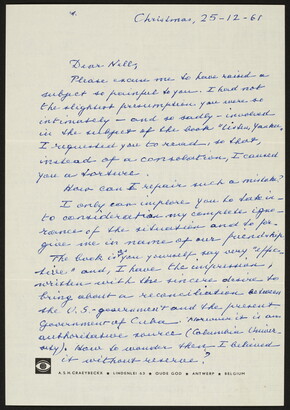 Christmas, 25-12-61
Dear Nelly,
Please excuse me to have raised a
subject so painful to you. I had not
the slightest presumption you were so
intimately – and so sadly – involved
in the subject of the book "Listen, Yankee"
I requested you to read, so that,
instead of a consolation, I caused
you a torture.
How can I repair such a mistake?
I only can implore you to take in-
to consideration my complete igno-
rance of the situation and to for-
give me in name of our friendship.
The book is, as you yourself say very "effec-
tive" and, I have the impression,
written with the sincere desire to
bring about a reconciliation between
the U.S-government and the present
government of Cuba. Moreover it is an
authoritative source (Columbia Univer-
sity). How to wonder then I believed
it without reserve?
A.S.H. CRAEYBECKX • LINDENLEI 63 • OUDE GOD • ANTWERP • BELGIUM